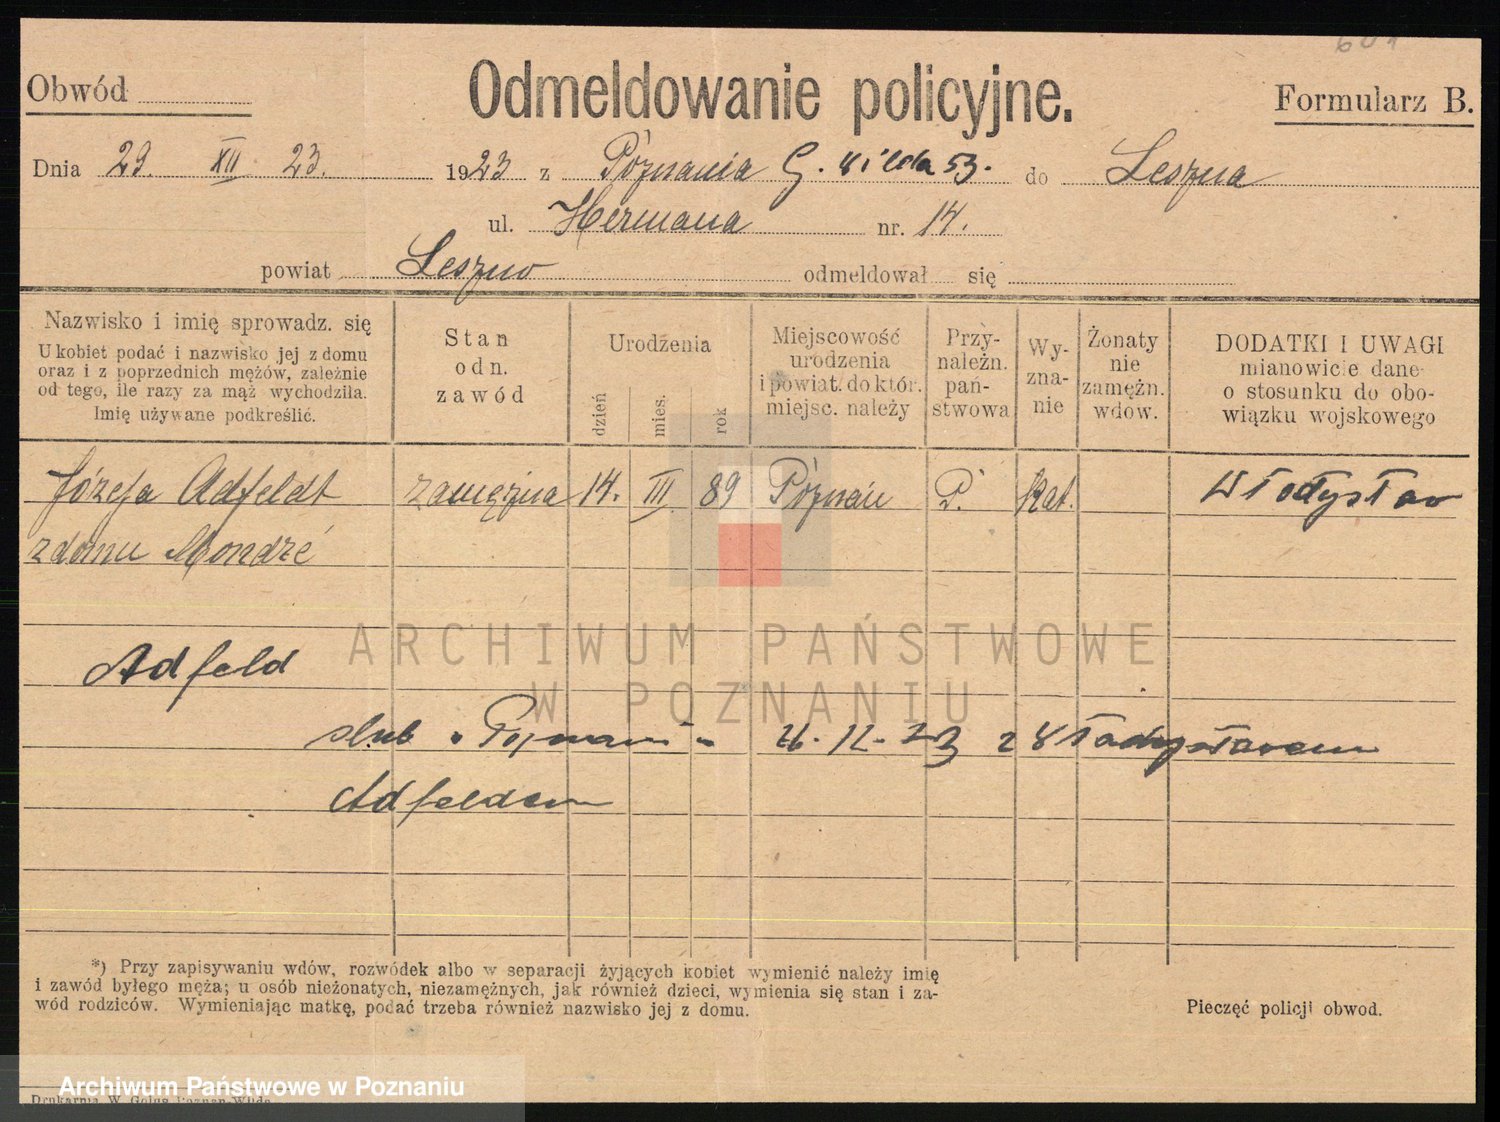 601
Obwód
Odmeldowanie policyjne.
Formularz B.
Dnia 29. XII 23. 1923 z Poznania G. Wilda 53. do Leszna
ul. Hermana nr. 14.
powiat Leszno odmeldował się
Nazwisko i imię sprowadz. się
U kobiet podać i nazwisko jej z domu
oraz i z poprzednich mężów, zależnie
od tego, ile razy za mąż wychodziła.
Imię używane podkreślić.
Stan
odn.
zawód
Urodzenia
dzień
mies.
rok
Miejscowość
urodzenia
i powiat. do któr.
miejsc. należy
Przy-
należn.
pań-
stwowa
Wy-
zna-
nie
Żonaty
nie
zamężn.
wdow.
DODATKI I UWAGI
mianowicie dane
o stosunku do obo-
wiązku wojskowego
Józefa Adfeldt zamężna 14. III 89 Poznań P. kat. Władysław
z domu Mondré
Adfeld
ślub w Poznaniu 26-12-23 z Władysławem
Adfeldem
ARCHIWUM PAŃSTWOWE
W POZNANIU
*) Przy zapisywaniu wdów, rozwódek albo w separacji żyjących kobiet wymienić należy imię
i zawód byłego męża; u osób nieżonatych, niezamężnych, jak również dzieci, wymienia się stan i za-
wód rodziców. Wymieniając matkę, podać trzeba również nazwisko jej z domu.
Pieczęć policji obwod.
Archiwum Państwowe w Poznaniu
Drukarnia W. Poznań-Wilda